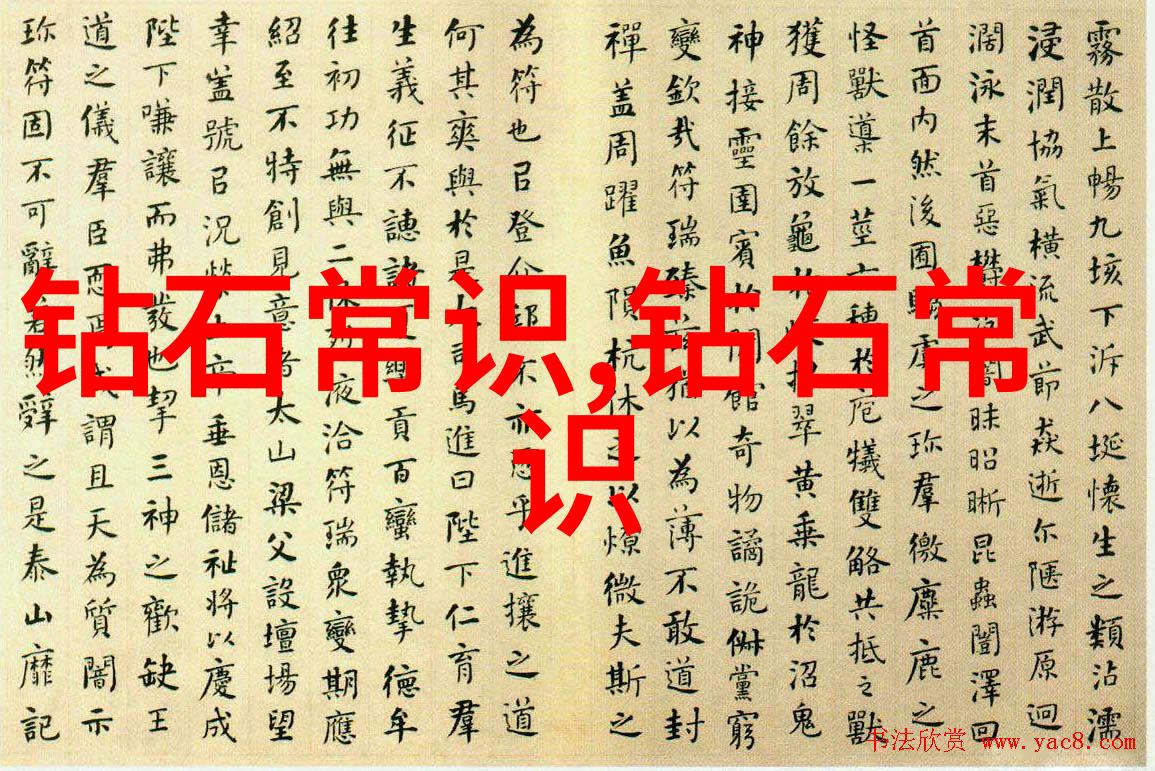 霧散上暢九垓下泝八埏懷生之類沾濡
浸潤協氣橫流武節焱逝尔陿游原迥
濶泳末首惡欝沒闇昧昭晰昆蟲闓澤回
首面内然後囿騶虞之珍羣徼麋鹿之
怪獸導一莖六穗於庖犧雙觡共抵之獸
獲周餘放龜於岐招翠黃乘龍於沼鬼
神接靈圉賓於閒館奇物譎詭俶儻窮
變欽哉符瑞臻兹猶以為薄不敢道封
禪盖周躍魚隕杭休之以燎微夫斯之
為符也㠯登介邱不亦恧乎進攘之道
何其爽與於是大司馬進曰陛下仁育羣
生義征不譓諸夏樂貢百蠻執摯德牟
往初功無與二休烈液洽符瑞衆變期應
紹至不特創見意者太山梁父設壇場望
幸盖號㠯况榮上帝垂恩儲祉將以慶成
陛下嗛讓而弗發也挈三神之歡缺王
道之儀羣臣恧焉或謂且天為質闇示
珎符固不可辭若然辤之是泰山靡記
钻石常识,钻石常
识
书法欣赏 www.yac8.com